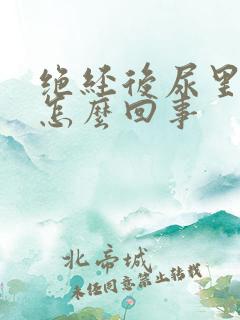 绝经后尿里
怎麼回事
北帝城
未经同意禁止转载